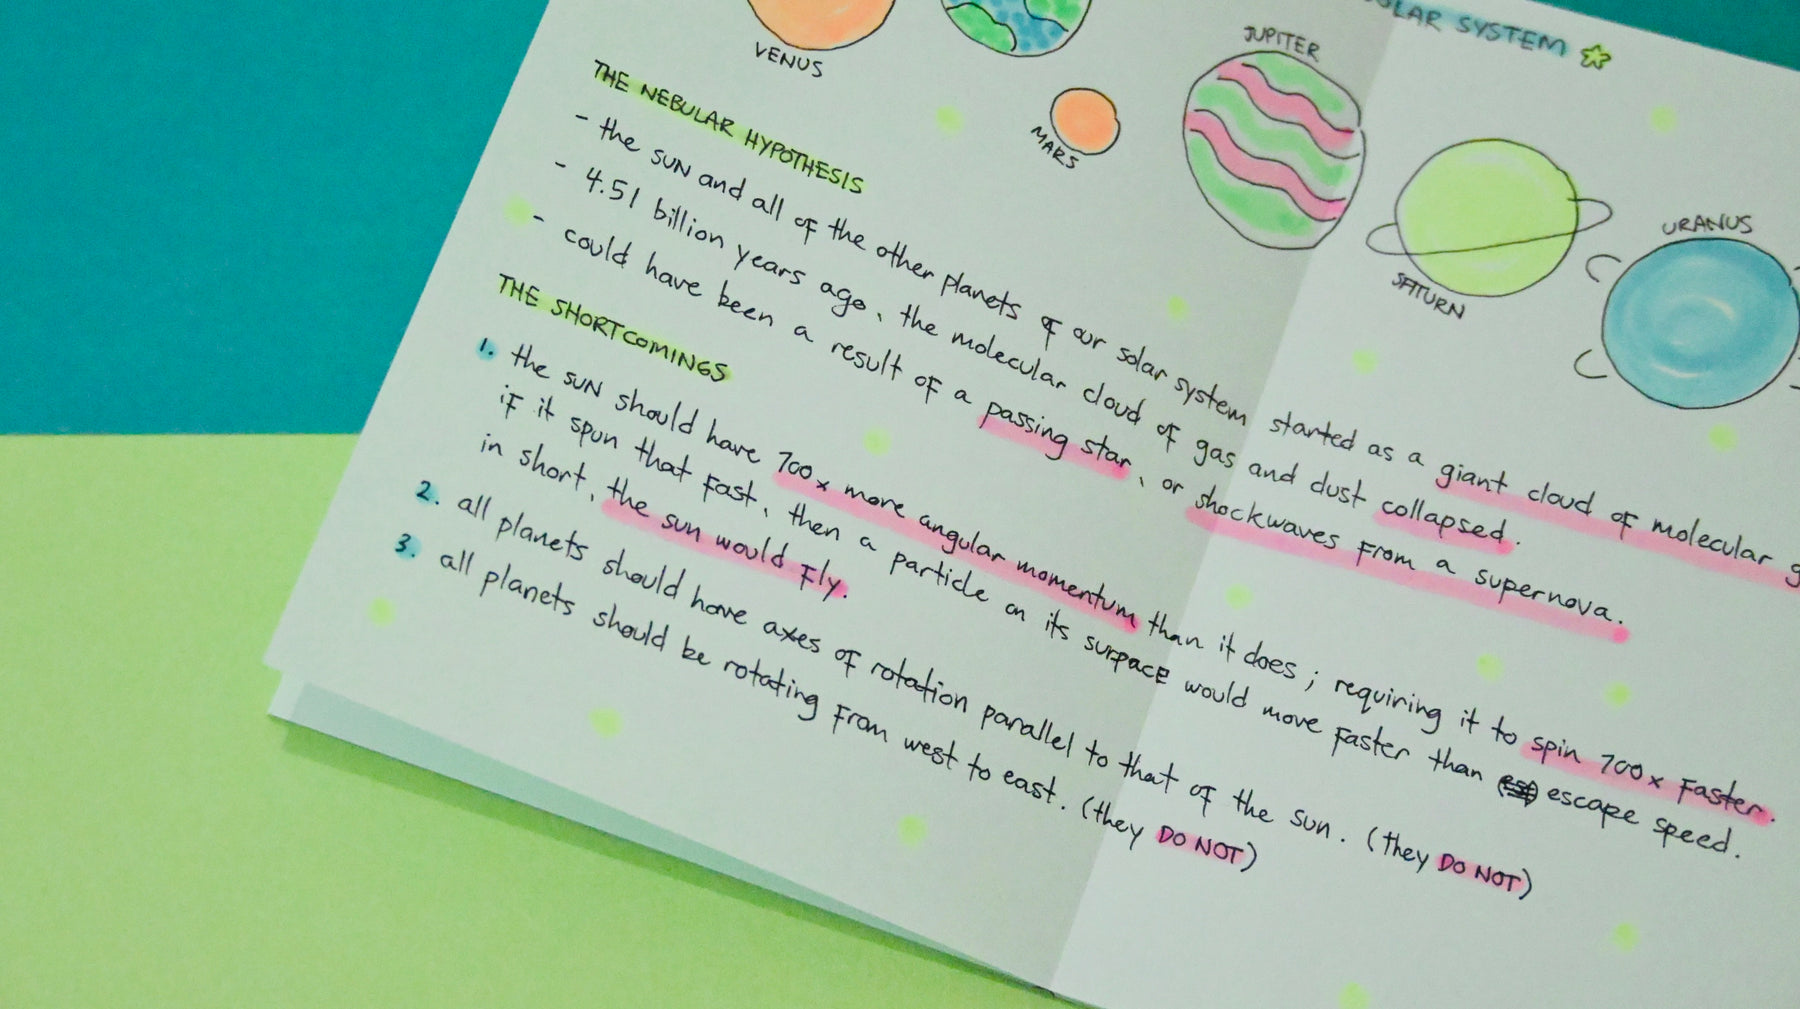 LAR SYSTEM
VENUS
JUPITER
MARS
SATURN
URANUS
THE NEBULAR HYPOTHESIS
- the SUN and all of the other planets of our solar system started as a giant cloud of molecular
- 4.51 billion years ago, the molecular cloud of gas and dust collapsed.
- could have been a result of a passing star, or shockwaves from a supernova.
THE SHORTCOMINGS
1. the SUN should have 700x more angular momentum than it does; requiring it to spin 700x faster.
if it spun that fast, then a particle on its surface would move faster than escape speed.
in short, the sun would fly.
2. all planets should have axes of rotation parallel to that of the sun. (they DO NOT)
3. all planets should be rotating from west to east. (they DO NOT)